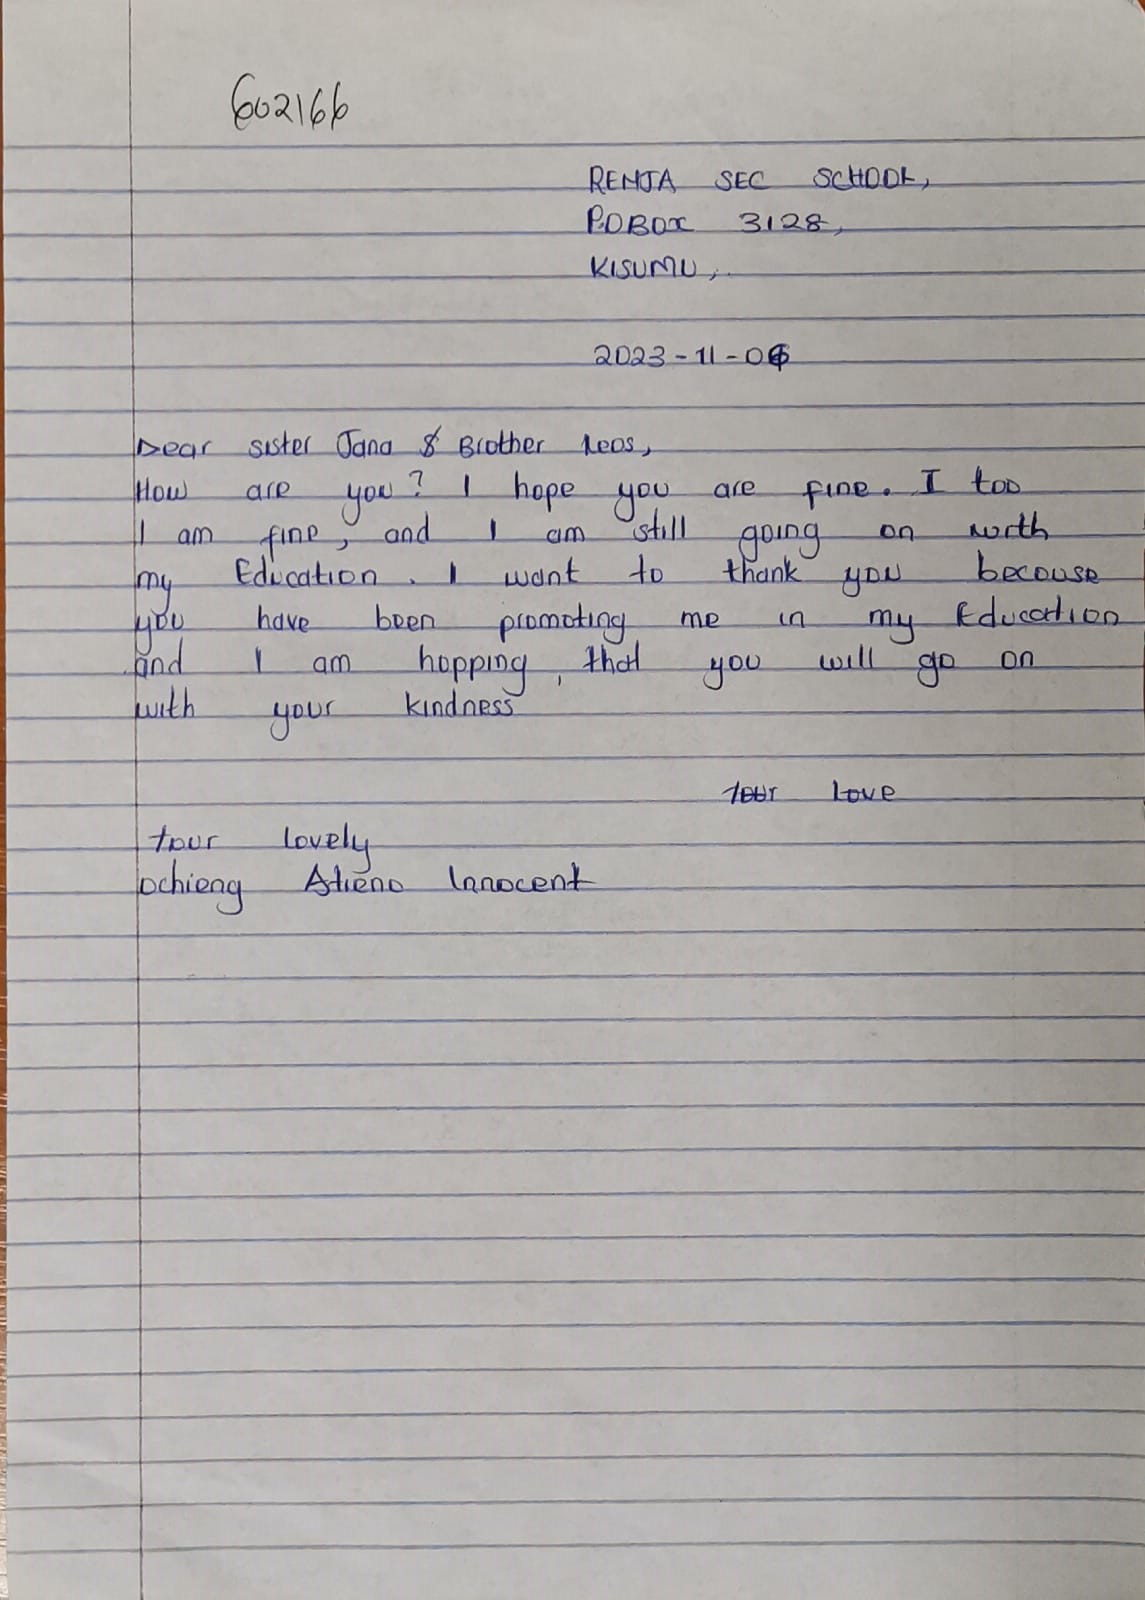 602166
RENJA SEC SCHOOL,
P.O BOX 3128,
KISUMU,
2023-11-06
Dear sister Jana & Brother Leos,
How are you? I hope you are fine. I too
I am fine, and I am still going on with
my Education. I want to thank you becouse
you have been promoting me in my Education
and I am hopping, that you will go on
with your kindness
Your Love
Your lovely
Ochieng Atieno Innocent